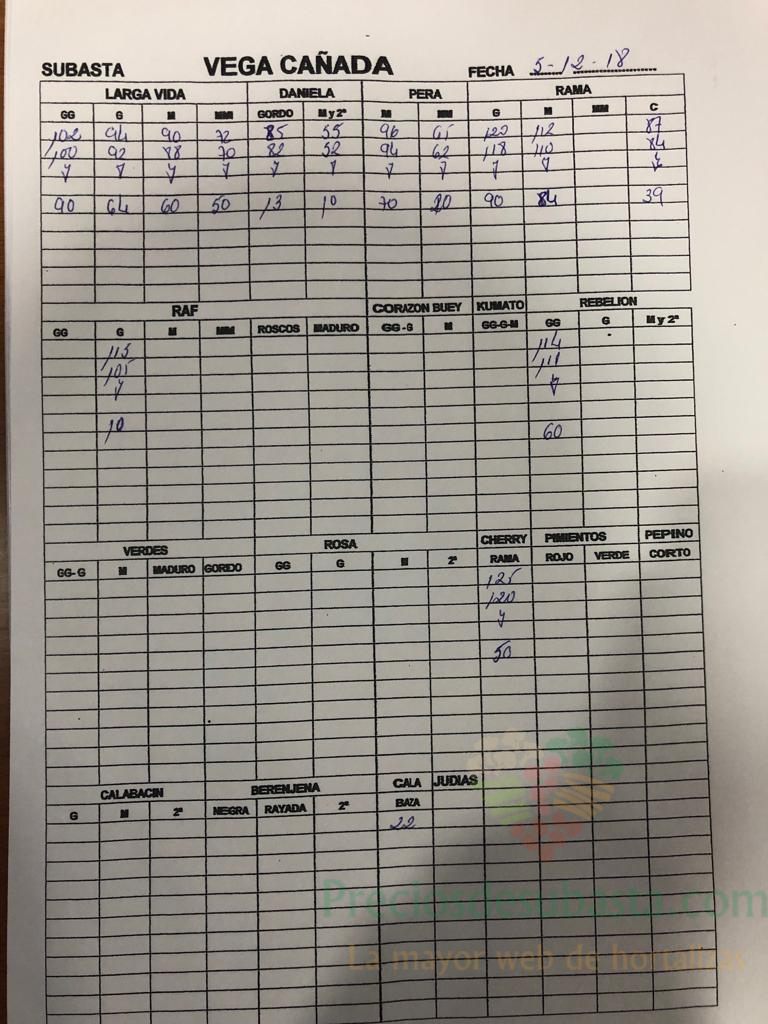 SUBASTA VEGA CAÑADA FECHA 5-12-18
LARGA VIDA DANIELA PERA RAMA
GG G M MM GORDO M y 2ª M MM G M MM C
102 94 90 72 85 55 96 120 112 87
100 92 88 70 82 52 94 62 118 110 84
90 64 60 50 13 10 70 20 90 84 39
RAF CORAZON BUEY KUMATO REBELION
GG G M MM ROSCOS MADURO GG-G M GG-G-M GG G M y 2ª
115 114
105 111
10 60
VERDES ROSA CHERRY PIMIENTOS PEPINO
GG-G M MADURO GORDO GG G M 2ª RAMA ROJO VERDE CORTO
125
120
50
CALABACIN BERENJENA CALA JUDIAS
G M 2ª NEGRA RAYADA 2ª BAZA
22
Preciosdesubasta.com
La mayor web de hortalizas